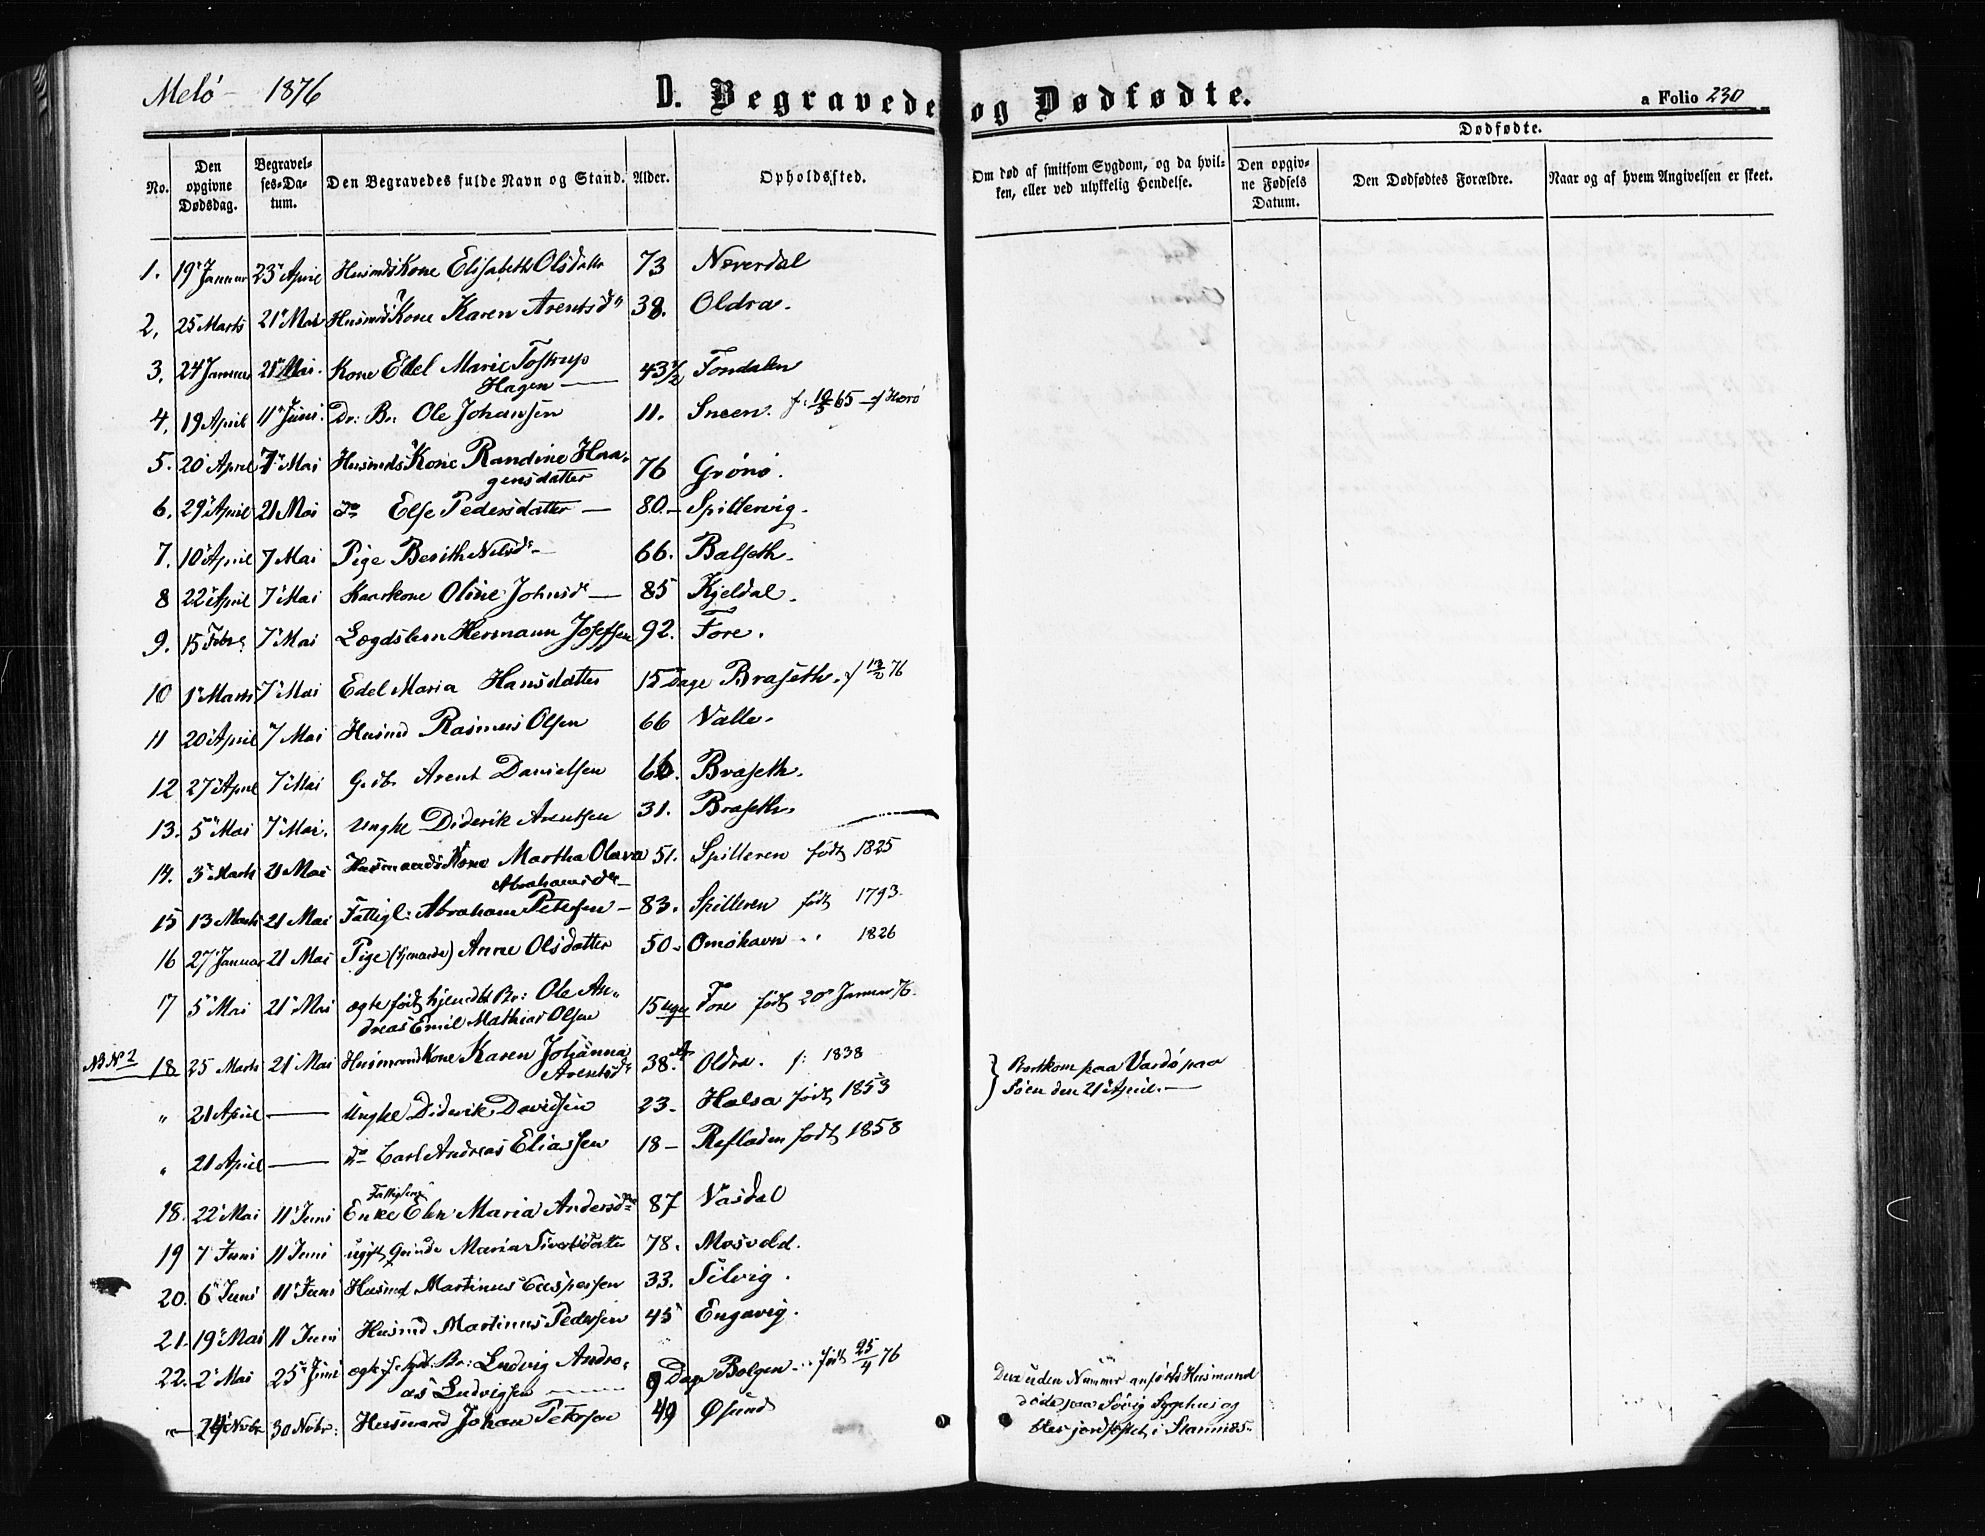 Melö 1876 D. Begravede og Dødfødte. a Folio 230
Dødfødte.
No. Den opgivne Dødsdag. Begravelses-Datum. Den Begravedes fulde Navn og Stand. Alder. Opholdssted. Om død af smitsom Sygdom, og da hvilken, eller ved ulykkelig Hendelse. Den opgivne Fødsels Datum. Den Dødfødtes Forældre. Naar og af hvem Angivelsen er skeet.
1. 19 Januar 23 April Husmds Kone Elisabeth Olsdatter 73 Neverdal
2. 25 Marts 21 Mai Husmds Kone Karen Arentsdr 38. Oldra.
3. 24 Januar 21 Mai. Kone Edel Marie Tostrup
Hagen — 43 1/2 Fondalen
4. 19 April 11 Juni. Dr: Br: Ole Johansen 11. Sneen. f: 19/5 65 — f Herö
5. 20 April 7 Mai Husmds Kone Randine Haa-
gensdatter 76 Grönö.
6. 29 April 21 Mai do Else Pedersdatter — 80. — Spillervig.
7. 10 April 7 Mai Pige Berith Nilsdr — 66. Balseth.
8 22 April 7 Mai Kaarkone Oline Johnsdr — 85 Kjeldal.
9. 15 Febr: 7 Mai Lægdslem Hermann Josefsen 92. Fore.
10 1 Marts 7 Mai Edel Maria Hansdatter 15 Dage Braseth. f 13/2 76
11 20 April 7 Mai Husmd Rasmus Olsen 66 Valle.
12 27 April 7 Mai Gdb. Arent Danielsen 66. Braseth.
13. 5 Mai 7 Mai. Ungke Diderik Arentsen 31. Braseth.
14. 3 Marts 21 Mai Husmands Kone Martha Olava
Abrahamsdr — 51. Spilleren født 1825
15 13 Marts 21 Mai Fattigl: Abraham Petersen — 83. Spilleren født 1793.
16 27 Januar 21 Mai Pige (tjenende) Anne Olsdatter 50 — Omöhavn . . 1826
17 5 Mai 21 Mai ægte født hjemdbt Br: Ole An-
dreas Emil Mathias Olsen 15 Uger Fore født 20 Januar 76.
NB No 2 18 25 Marts 21 Mai Husmand Kone Karen Johanna
Arentsdr 38. Oldra. f: 1838
" 21 April — Ungke Diderik Davidsen 23. Halsa født 1853 } Bortkom paa Vardö paa
Söen den 21 April. —
" 21 April — do Carl Andreas Eliassen 18 — Refladen født 1858
18. 22 Mai 11 Juni Fattiglem
Enke Elen Maria Andersdr 87 Vasdal
19 7 Juni 11 Juni ugift Qvinde Maria Sivertsdatter 78. Mosvold.
20. 6 Juni 11 Juni Husmd Martinus Caspersen 33. Selvig.
21. 19 Mai 11 Juni Husmd Martinus Pedersen 45 Engavig.
22. 2 Mai 25 Juni ægte f. Br: Ludvig Andre-
as Ludvigsen — 9 Dage Bolgen . . . født 25/4 76
— 24 Novbr 30 Nvbr: Husmand Johan Petersen 49 Øsund
Den uden Nummer anførte Husmand
døde paa Sövig Sygehus og
blev jordfæstet i Stamnes.